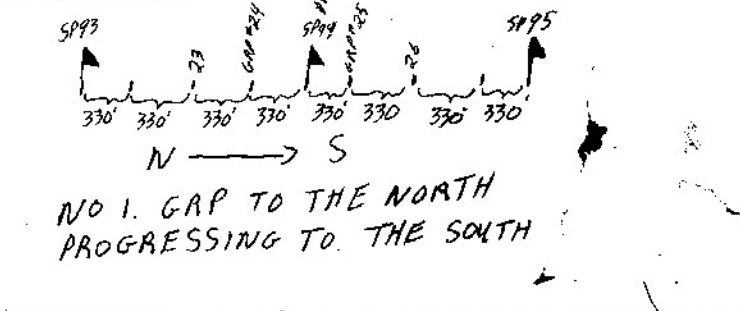 SP93 23 GRP#24 SP94 GRP#25 26 SP95
330' 330' 330' 330' 330' 330 330' 330
N → S
NO 1. GRP TO THE NORTH
PROGRESSING TO THE SOUTH